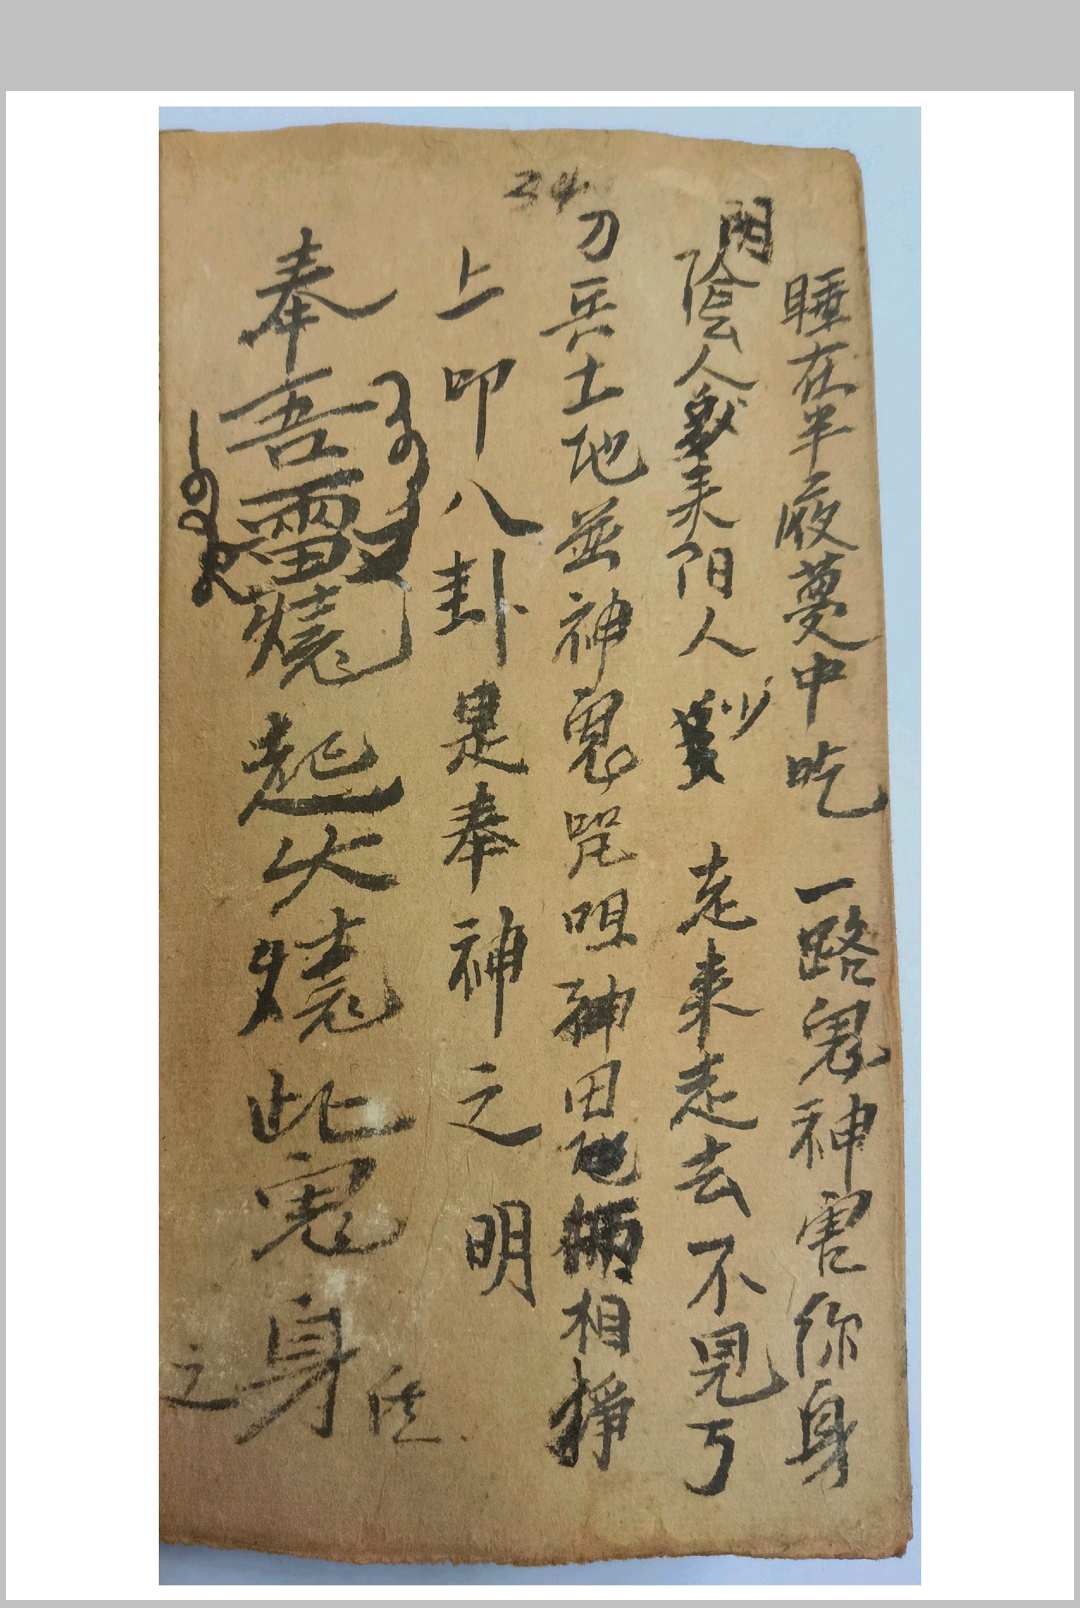 睡在半夜夢中吃 一路鬼神害你身
陰人 来阳人 走来走去不見了
34
刀兵土地並神鬼咒咀神田地 相掙
上叩八卦是奉神之明
奉吾雷燒起火燒此鬼身
之